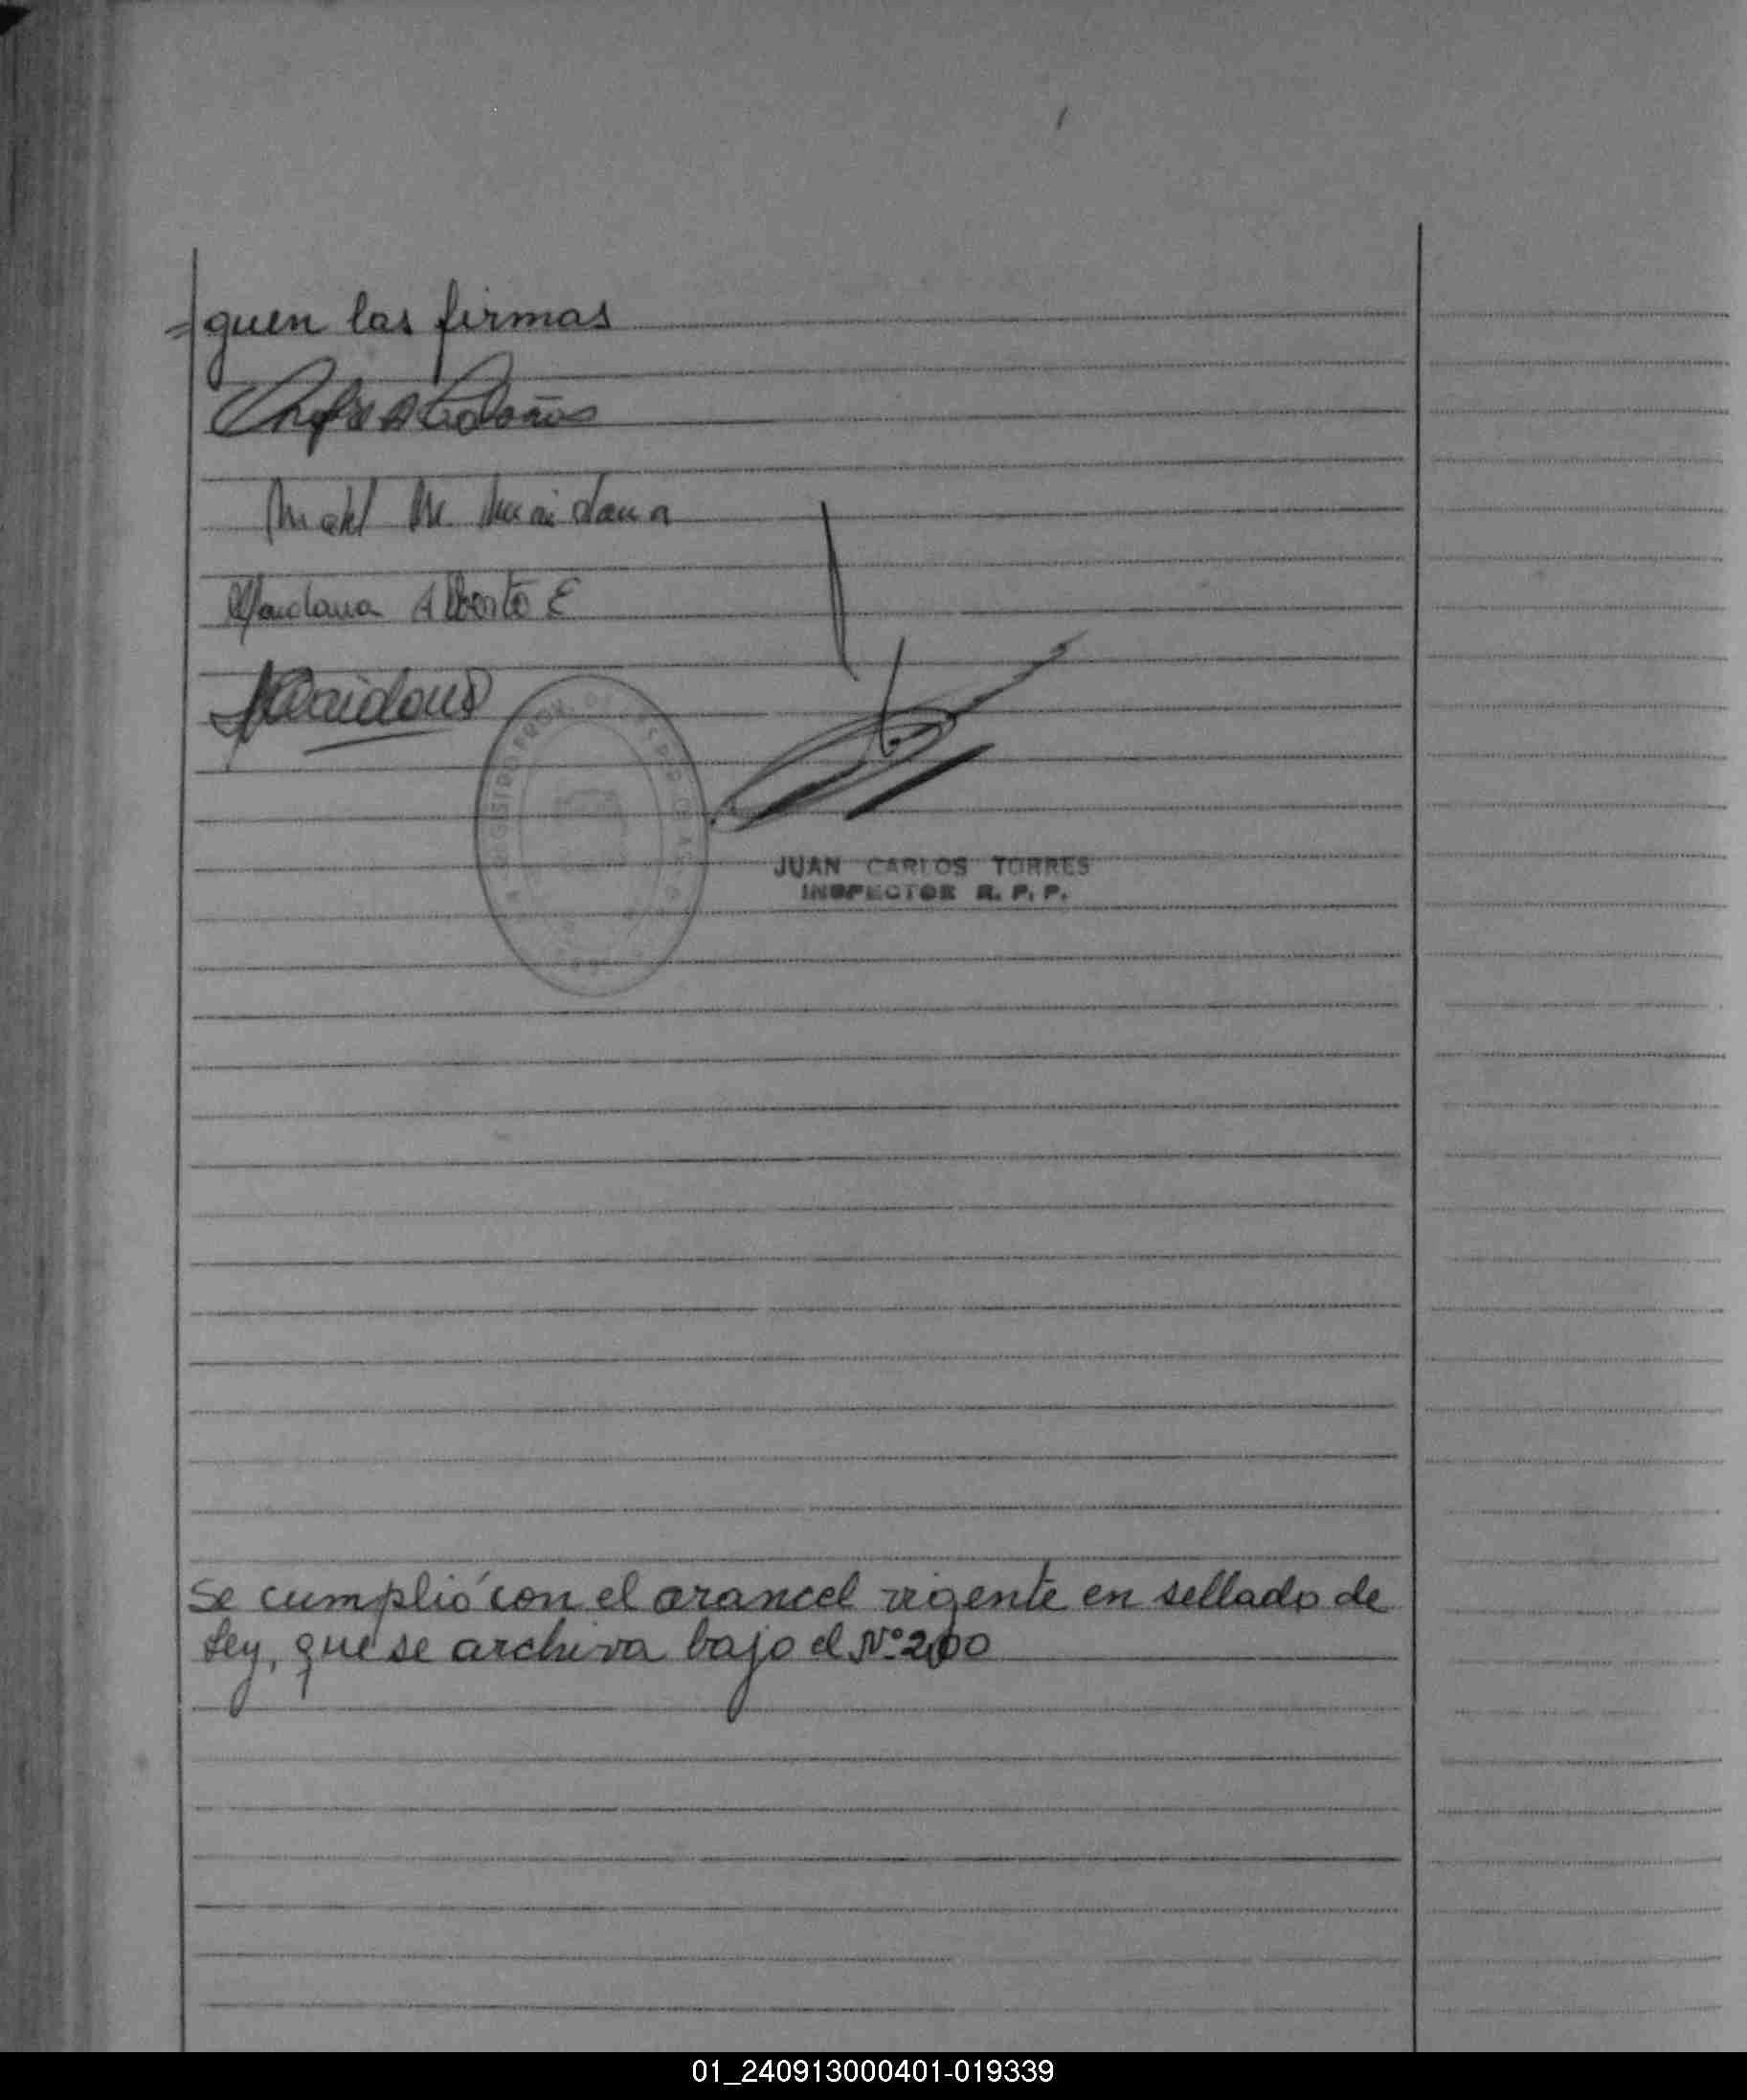 =guen las firmas
Maidana Alberto E
Maidana
JUAN CARLOS TORRES
INSPECTOR R. P. P.
Se cumplió con el arancel vigente en sellado de
Ley, que se archiva bajo el Nº 200
01_240913000401-019339